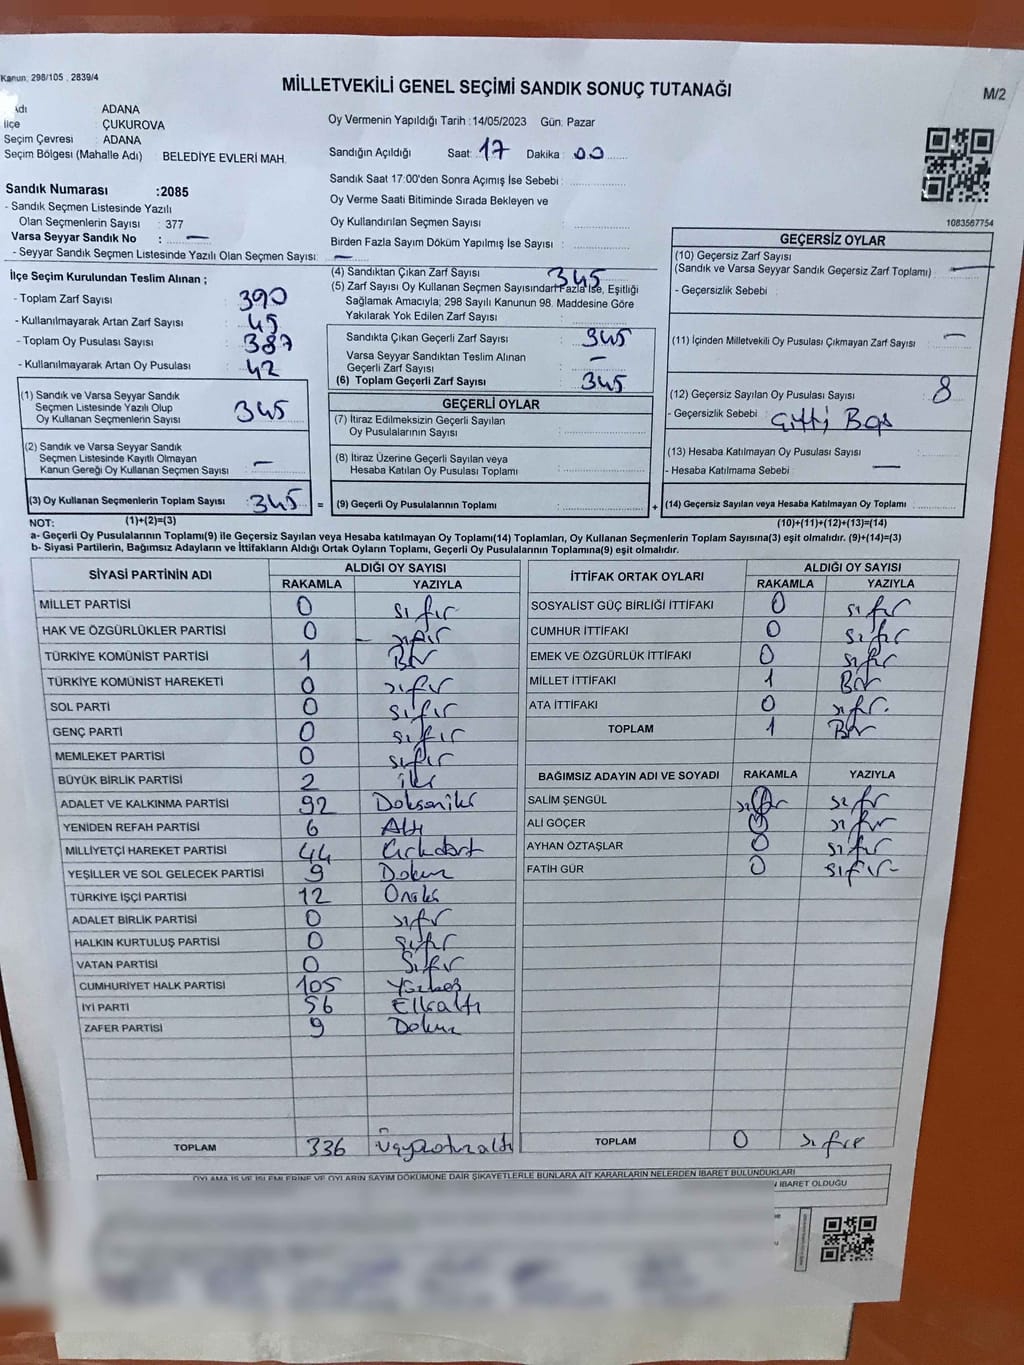 Kanun: 298/105 , 2839/4
MİLLETVEKİLİ GENEL SEÇİMİ SANDIK SONUÇ TUTANAĞI
M/2
Adı ADANA
İlçe ÇUKUROVA
Seçim Çevresi ADANA
Seçim Bölgesi (Mahalle Adı) BELEDİYE EVLERİ MAH.
Oy Vermenin Yapıldığı Tarih :14/05/2023 Gün: Pazar
Sandığın Açıldığı Saat: 17 Dakika : 00
Sandık Saat 17:00'den Sonra Açımış İse Sebebi :
Oy Verme Saati Bitiminde Sırada Bekleyen ve
Oy Kullandırılan Seçmen Sayısı :
Birden Fazla Sayım Döküm Yapılmış İse Sayısı :
Sandık Numarası :2085
- Sandık Seçmen Listesinde Yazılı
Olan Seçmenlerin Sayısı : 377
Varsa Seyyar Sandık No : —
- Seyyar Sandık Seçmen Listesinde Yazılı Olan Seçmen Sayısı: —
1083567754
İlçe Seçim Kurulundan Teslim Alınan ;
- Toplam Zarf Sayısı : 390
- Kullanılmayarak Artan Zarf Sayısı : 45
- Toplam Oy Pusulası Sayısı : 387
- Kullanılmayarak Artan Oy Pusulası : 42
(1) Sandık ve Varsa Seyyar Sandık
Seçmen Listesinde Yazılı Olup
Oy Kullanan Seçmenlerin Sayısı : 345
(2) Sandık ve Varsa Seyyar Sandık
Seçmen Listesinde Kayıtlı Olmayan
Kanun Gereği Oy Kullanan Seçmen Sayısı : —
(3) Oy Kullanan Seçmenlerin Toplam Sayısı : 345 =
(4) Sandıktan Çıkan Zarf Sayısı : 345
(5) Zarf Sayısı Oy Kullanan Seçmen Sayısından Fazla İse, Eşitliği
Sağlamak Amacıyla; 298 Sayılı Kanunun 98. Maddesine Göre
Yakılarak Yok Edilen Zarf Sayısı :
Sandıkta Çıkan Geçerli Zarf Sayısı : 345
Varsa Seyyar Sandıktan Teslim Alınan
Geçerli Zarf Sayısı : —
(6) Toplam Geçerli Zarf Sayısı : 345
GEÇERLİ OYLAR
(7) İtiraz Edilmeksizin Geçerli Sayılan
Oy Pusulalarının Sayısı :
(8) İtiraz Üzerine Geçerli Sayılan veya
Hesaba Katılan Oy Pusulası Toplamı :
(9) Geçerli Oy Pusulalarının Toplamı : +
GEÇERSİZ OYLAR
(10) Geçersiz Zarf Sayısı
(Sandık ve Varsa Seyyar Sandık Geçersiz Zarf Toplamı) : —
- Geçersizlik Sebebi :
(11) İçinden Milletvekili Oy Pusulası Çıkmayan Zarf Sayısı : —
(12) Geçersiz Sayılan Oy Pusulası Sayısı : 8
- Geçersizlik Sebebi : Çifti Boş
(13) Hesaba Katılmayan Oy Pusulası Sayısı :
- Hesaba Katılmama Sebebi : —
(14) Geçersiz Sayılan veya Hesaba Katılmayan Oy Toplamı :
NOT: (1)+(2)=(3) (10)+(11)+(12)+(13)=(14)
a- Geçerli Oy Pusulalarının Toplamı(9) ile Geçersiz Sayılan veya Hesaba Katılmayan Oy Toplamı(14) Toplamları, Oy Kullanan Seçmenlerin Toplam Sayısına(3) eşit olmalıdır. (9)+(14)=(3)
b- Siyasi Partilerin, Bağımsız Adayların ve İttifakların Aldığı Ortak Oyların Toplamı, Geçerli Oy Pusulalarının Toplamına(9) eşit olmalıdır.
SİYASİ PARTİNİN ADI ALDIĞI OY SAYISI
RAKAMLA YAZIYLA
MİLLET PARTİSİ 0 sıfır
HAK VE ÖZGÜRLÜKLER PARTİSİ 0 sıfır
TÜRKİYE KOMÜNİST PARTİSİ 1 Bir
TÜRKİYE KOMÜNİST HAREKETİ 0 sıfır
SOL PARTİ 0 sıfır
GENÇ PARTİ 0 sıfır
MEMLEKET PARTİSİ 0 sıfır
BÜYÜK BİRLİK PARTİSİ 2 iki
ADALET VE KALKINMA PARTİSİ 92 Doksaniki
YENİDEN REFAH PARTİSİ 6 Altı
MİLLİYETÇİ HAREKET PARTİSİ 44 Kırkdört
YEŞİLLER VE SOL GELECEK PARTİSİ 9 Dokuz
TÜRKİYE İŞÇİ PARTİSİ 12 Oniki
ADALET BİRLİK PARTİSİ 0 sıfır
HALKIN KURTULUŞ PARTİSİ 0 sıfır
VATAN PARTİSİ 0 Sıfır
CUMHURİYET HALK PARTİSİ 105 Yüzbeş
İYİ PARTİ 56 Ellialtı
ZAFER PARTİSİ 9 Dokuz
TOPLAM 336 Üçyüzotuzaltı
İTTİFAK ORTAK OYLARI ALDIĞI OY SAYISI
RAKAMLA YAZIYLA
SOSYALİST GÜÇ BİRLİĞİ İTTİFAKI 0 sıfır
CUMHUR İTTİFAKI 0 sıfır
EMEK VE ÖZGÜRLÜK İTTİFAKI 0 sıfır
MİLLET İTTİFAKI 1 Bir
ATA İTTİFAKI 0 sıfır.
TOPLAM 1 Bir
BAĞIMSIZ ADAYIN ADI VE SOYADI RAKAMLA YAZIYLA
SALİM ŞENGÜL sıfır sıfır
ALİ GÖÇER 0 sıfır
AYHAN ÖZTAŞLAR 0 sıfır
FATİH GÜR 0 sıfır
TOPLAM 0 sıfır
OYLAMA İŞ VE İŞLEMLERİNE VE OYLARIN SAYIM DÖKÜMÜNE DAİR ŞİKAYETLERLE BUNLARA AİT KARARLARIN NELERDEN İBARET BULUNDUKLARI
İBARET OLDUĞU